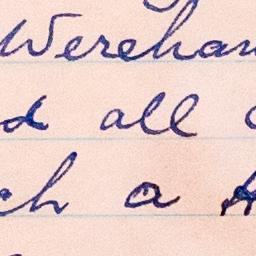 Wereham
d all
ch a